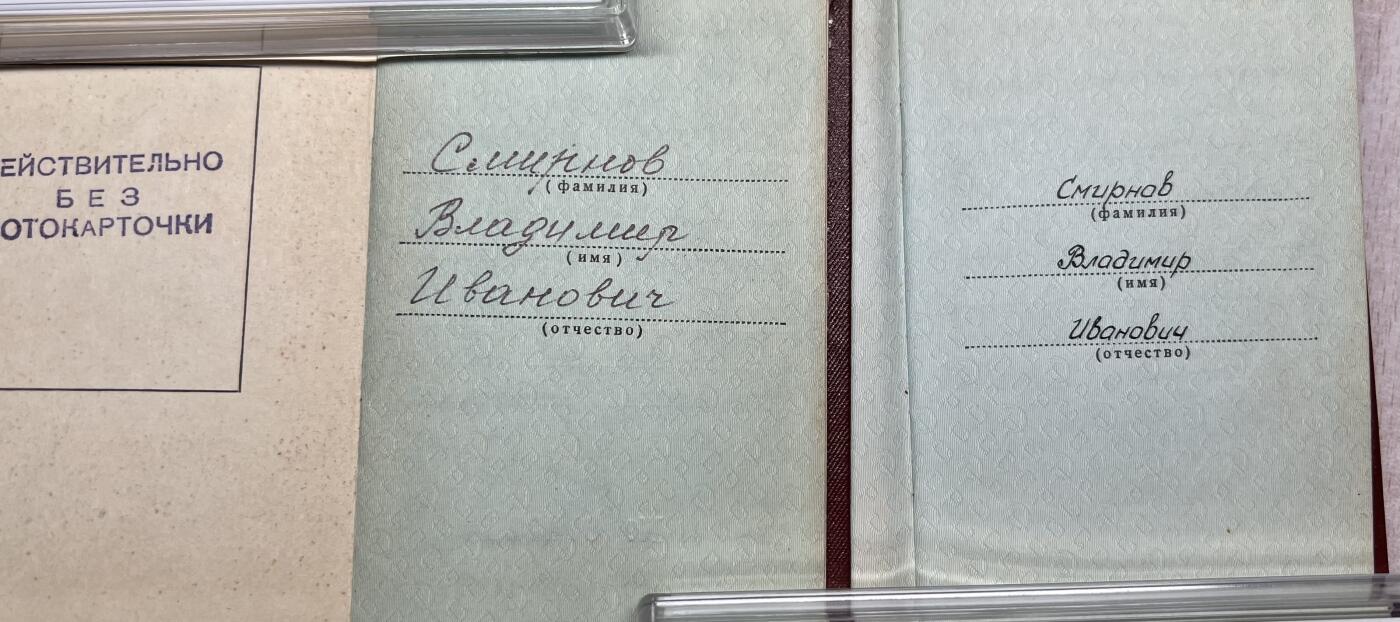 ЕЙСТВИТЕЛЬНО
БЕЗ
ОТОКАРТОЧКИ
Смирнов
(фамилия)
Владимир
(имя)
Иванович
(отчество)
Смирнов
(фамилия)
Владимир
(имя)
Иванович
(отчество)